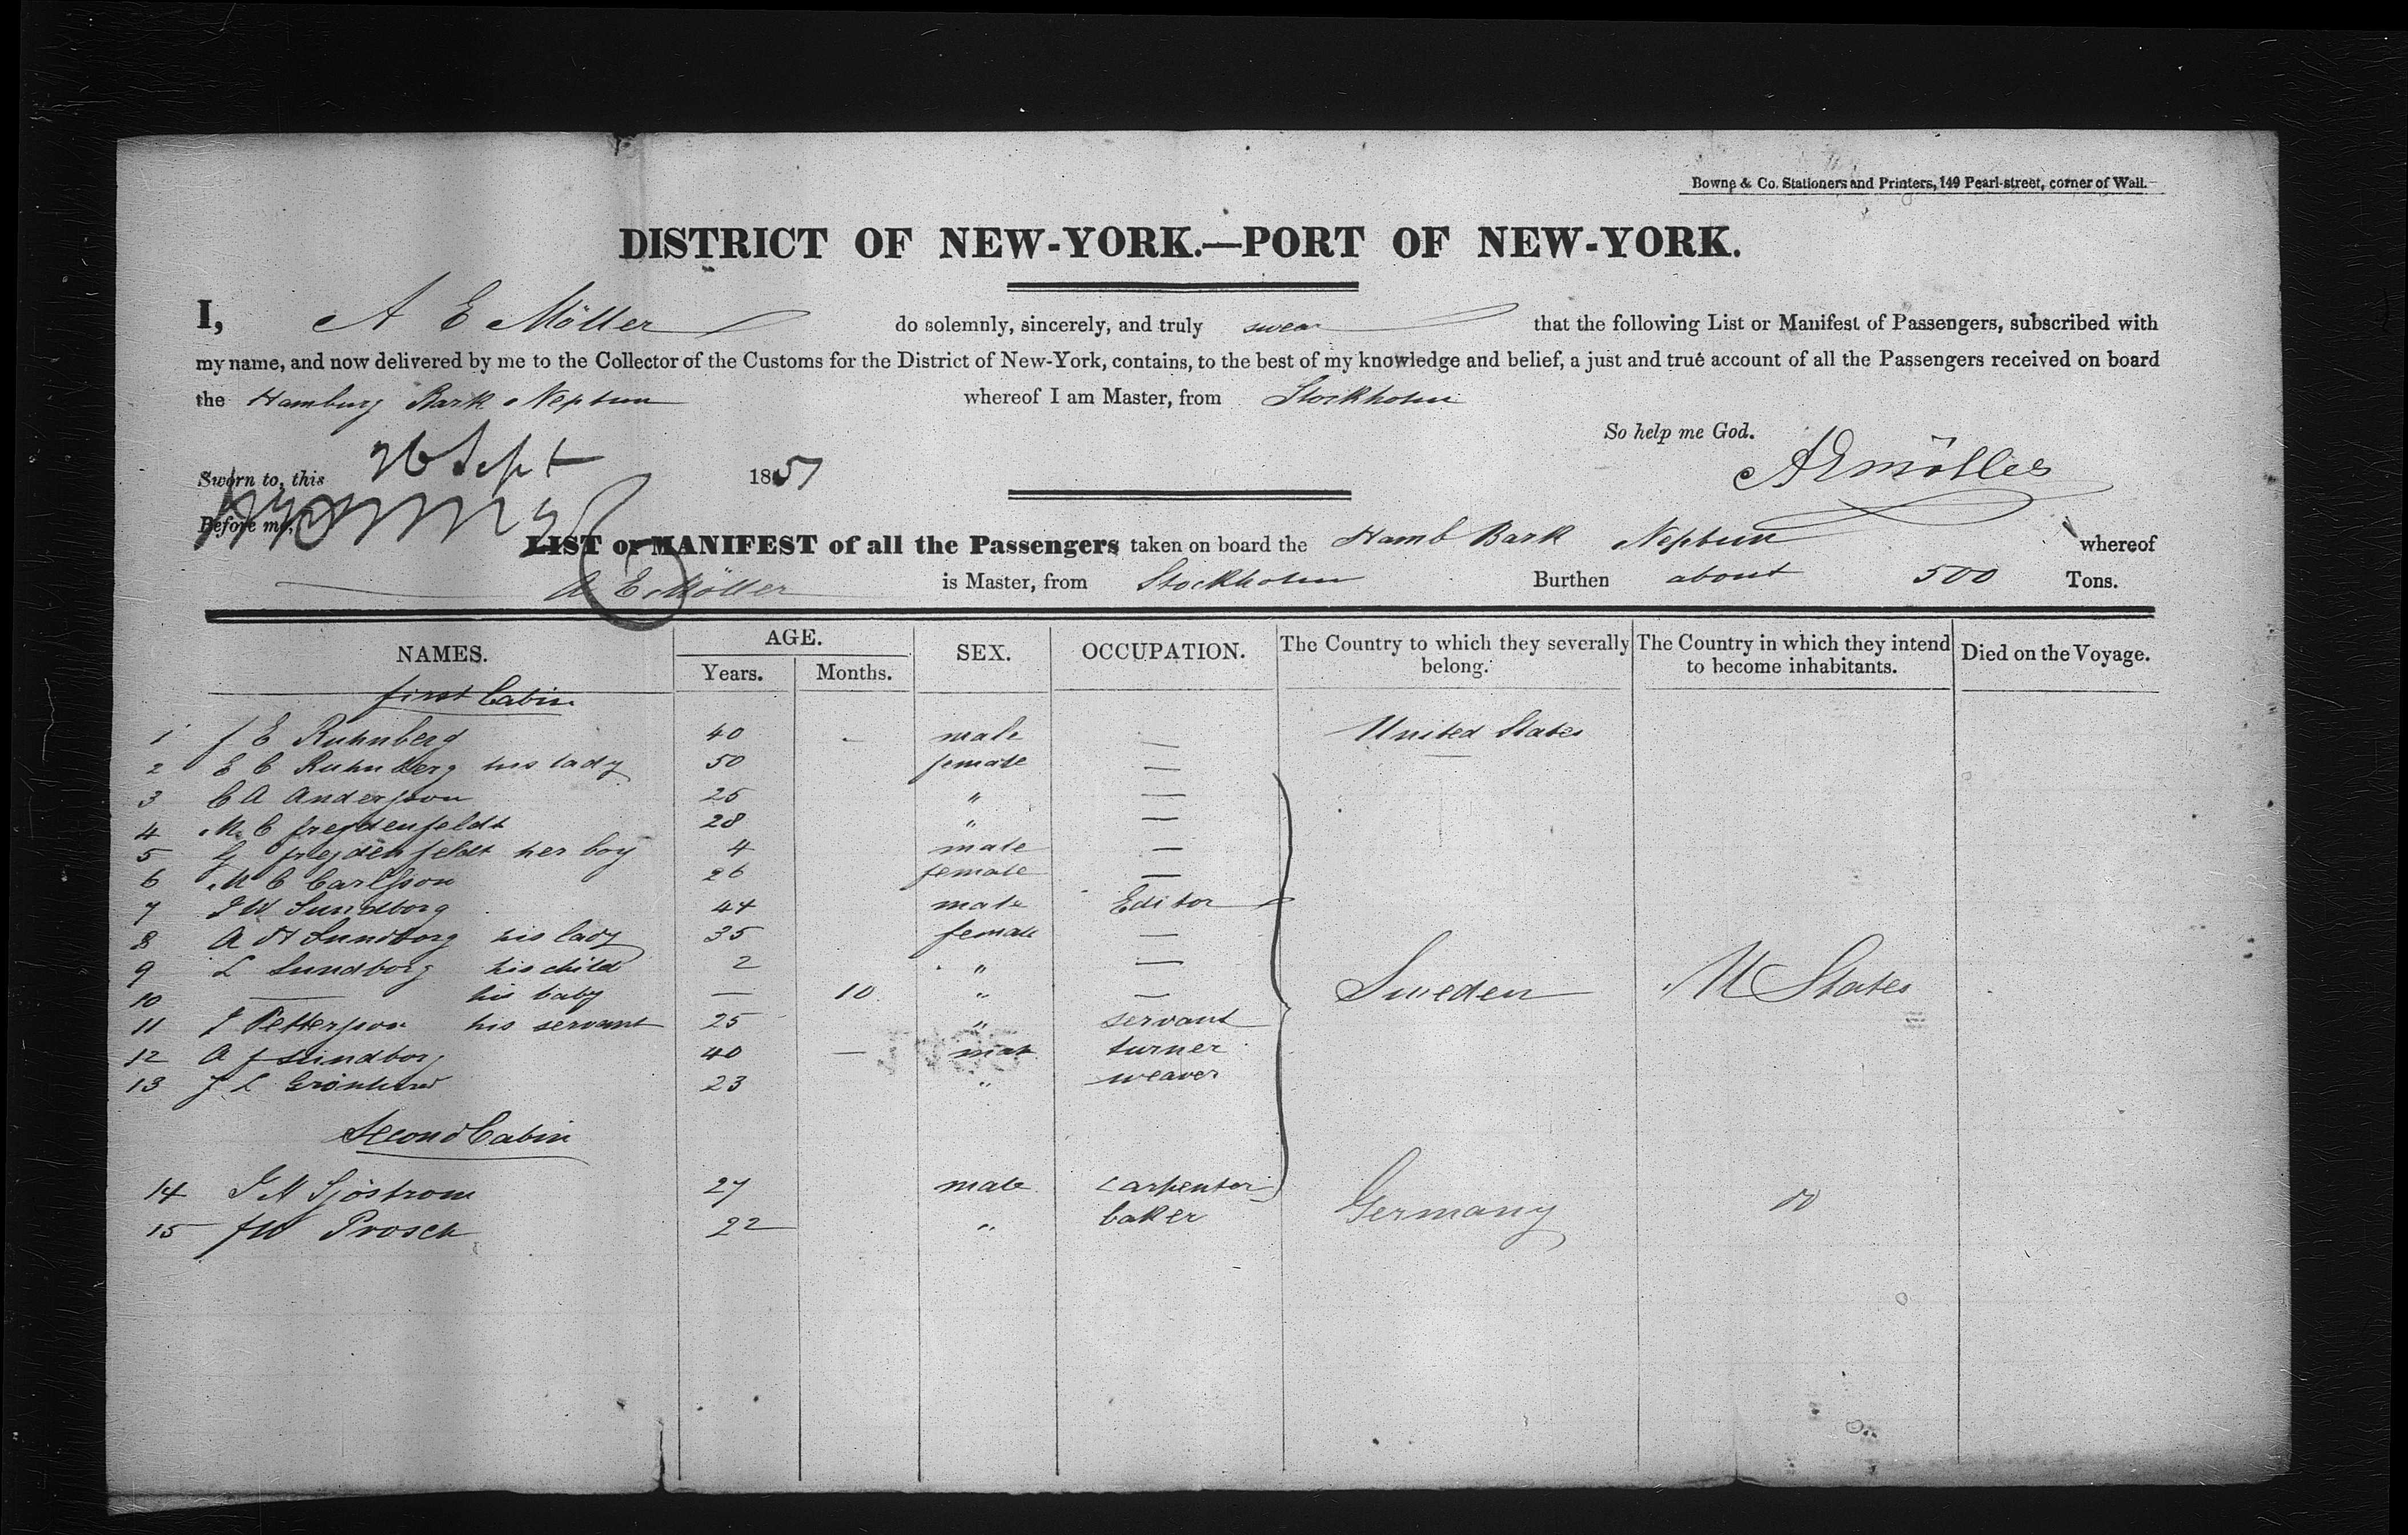 Bowne & Co. Stationers and Printers, 149 Pearl-street, corner of Wall.
DISTRICT OF NEW-YORK.—PORT OF NEW-YORK.
I, A E Möller do solemnly, sincerely, and truly swear that the following List or Manifest of Passengers, subscribed with
my name, and now delivered by me to the Collector of the Customs for the District of New-York, contains, to the best of my knowledge and belief, a just and true account of all the Passengers received on board
the Hamburg Bark Neptun whereof I am Master, from Stockholm
So help me God.
Sworn to, this 26 Sept 1851
AEMöller
Before me,
LIST or MANIFEST of all the Passengers taken on board the Hamb Bark Neptun whereof
A E Möller is Master, from Stockholm Burthen about 500 Tons.
NAMES. AGE. Years. Months. SEX. OCCUPATION. The Country to which they severally belong. The Country in which they intend to become inhabitants. Died on the Voyage.
first Cabin
1 J E Ruhnberg 40 — male — United States
2 E C Ruhnberg his lady 50 female —
3 C A Andersson 25 " —
4 M C frejdenfeldt 28 " —
5 frejdenfeldt her boy 4 male —
6 M C Carlsson 26 female —
7 J W Sundborg 44 male Editor
8 A H Sundborg his lady 35 female —
9 L Sundborg his child 2 " —
10 — his baby — 10 " — Sweden U States
11 J Pettersson his servant 25 " servant
12 A J Lindborg 40 — male turner
13 J L 23 " weaver
Second Cabin
14 J A Sjöstrom 27 male Carpenter
15 J W Prosch 22 " baker Germany do